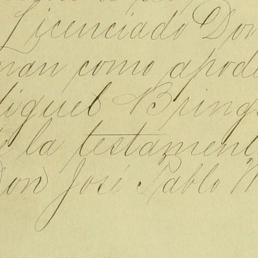 Licenciado Don
man como apode
Miguel Bring
y la testament
Don José Pablo M